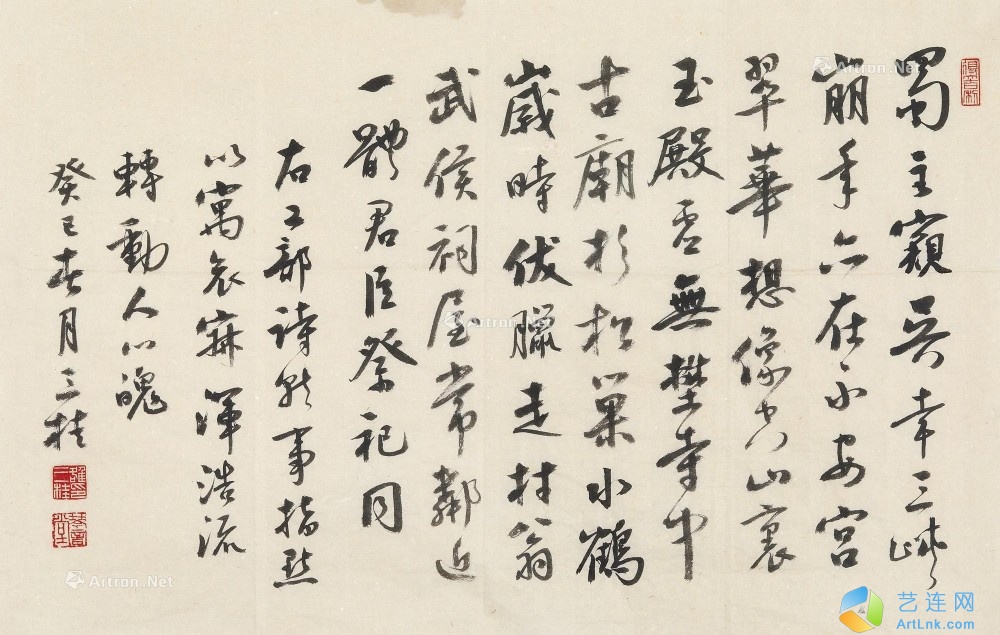 蜀主窺吳幸三峽
崩年亦在永安宮
翠華想像空山裏
玉殿虛無壄寺中
古廟杉松巢水鶴
歲時伏臘走村翁
武侯祠屋常鄰近
一體君臣祭祀同
右工部詩就事指點
以寓哀寂渾浩流
轉動人心魄
癸巳春月三桂
Artron.Net
Artron.Net
Artron.Net
Artron.Net
艺连网
ArtLnk.com